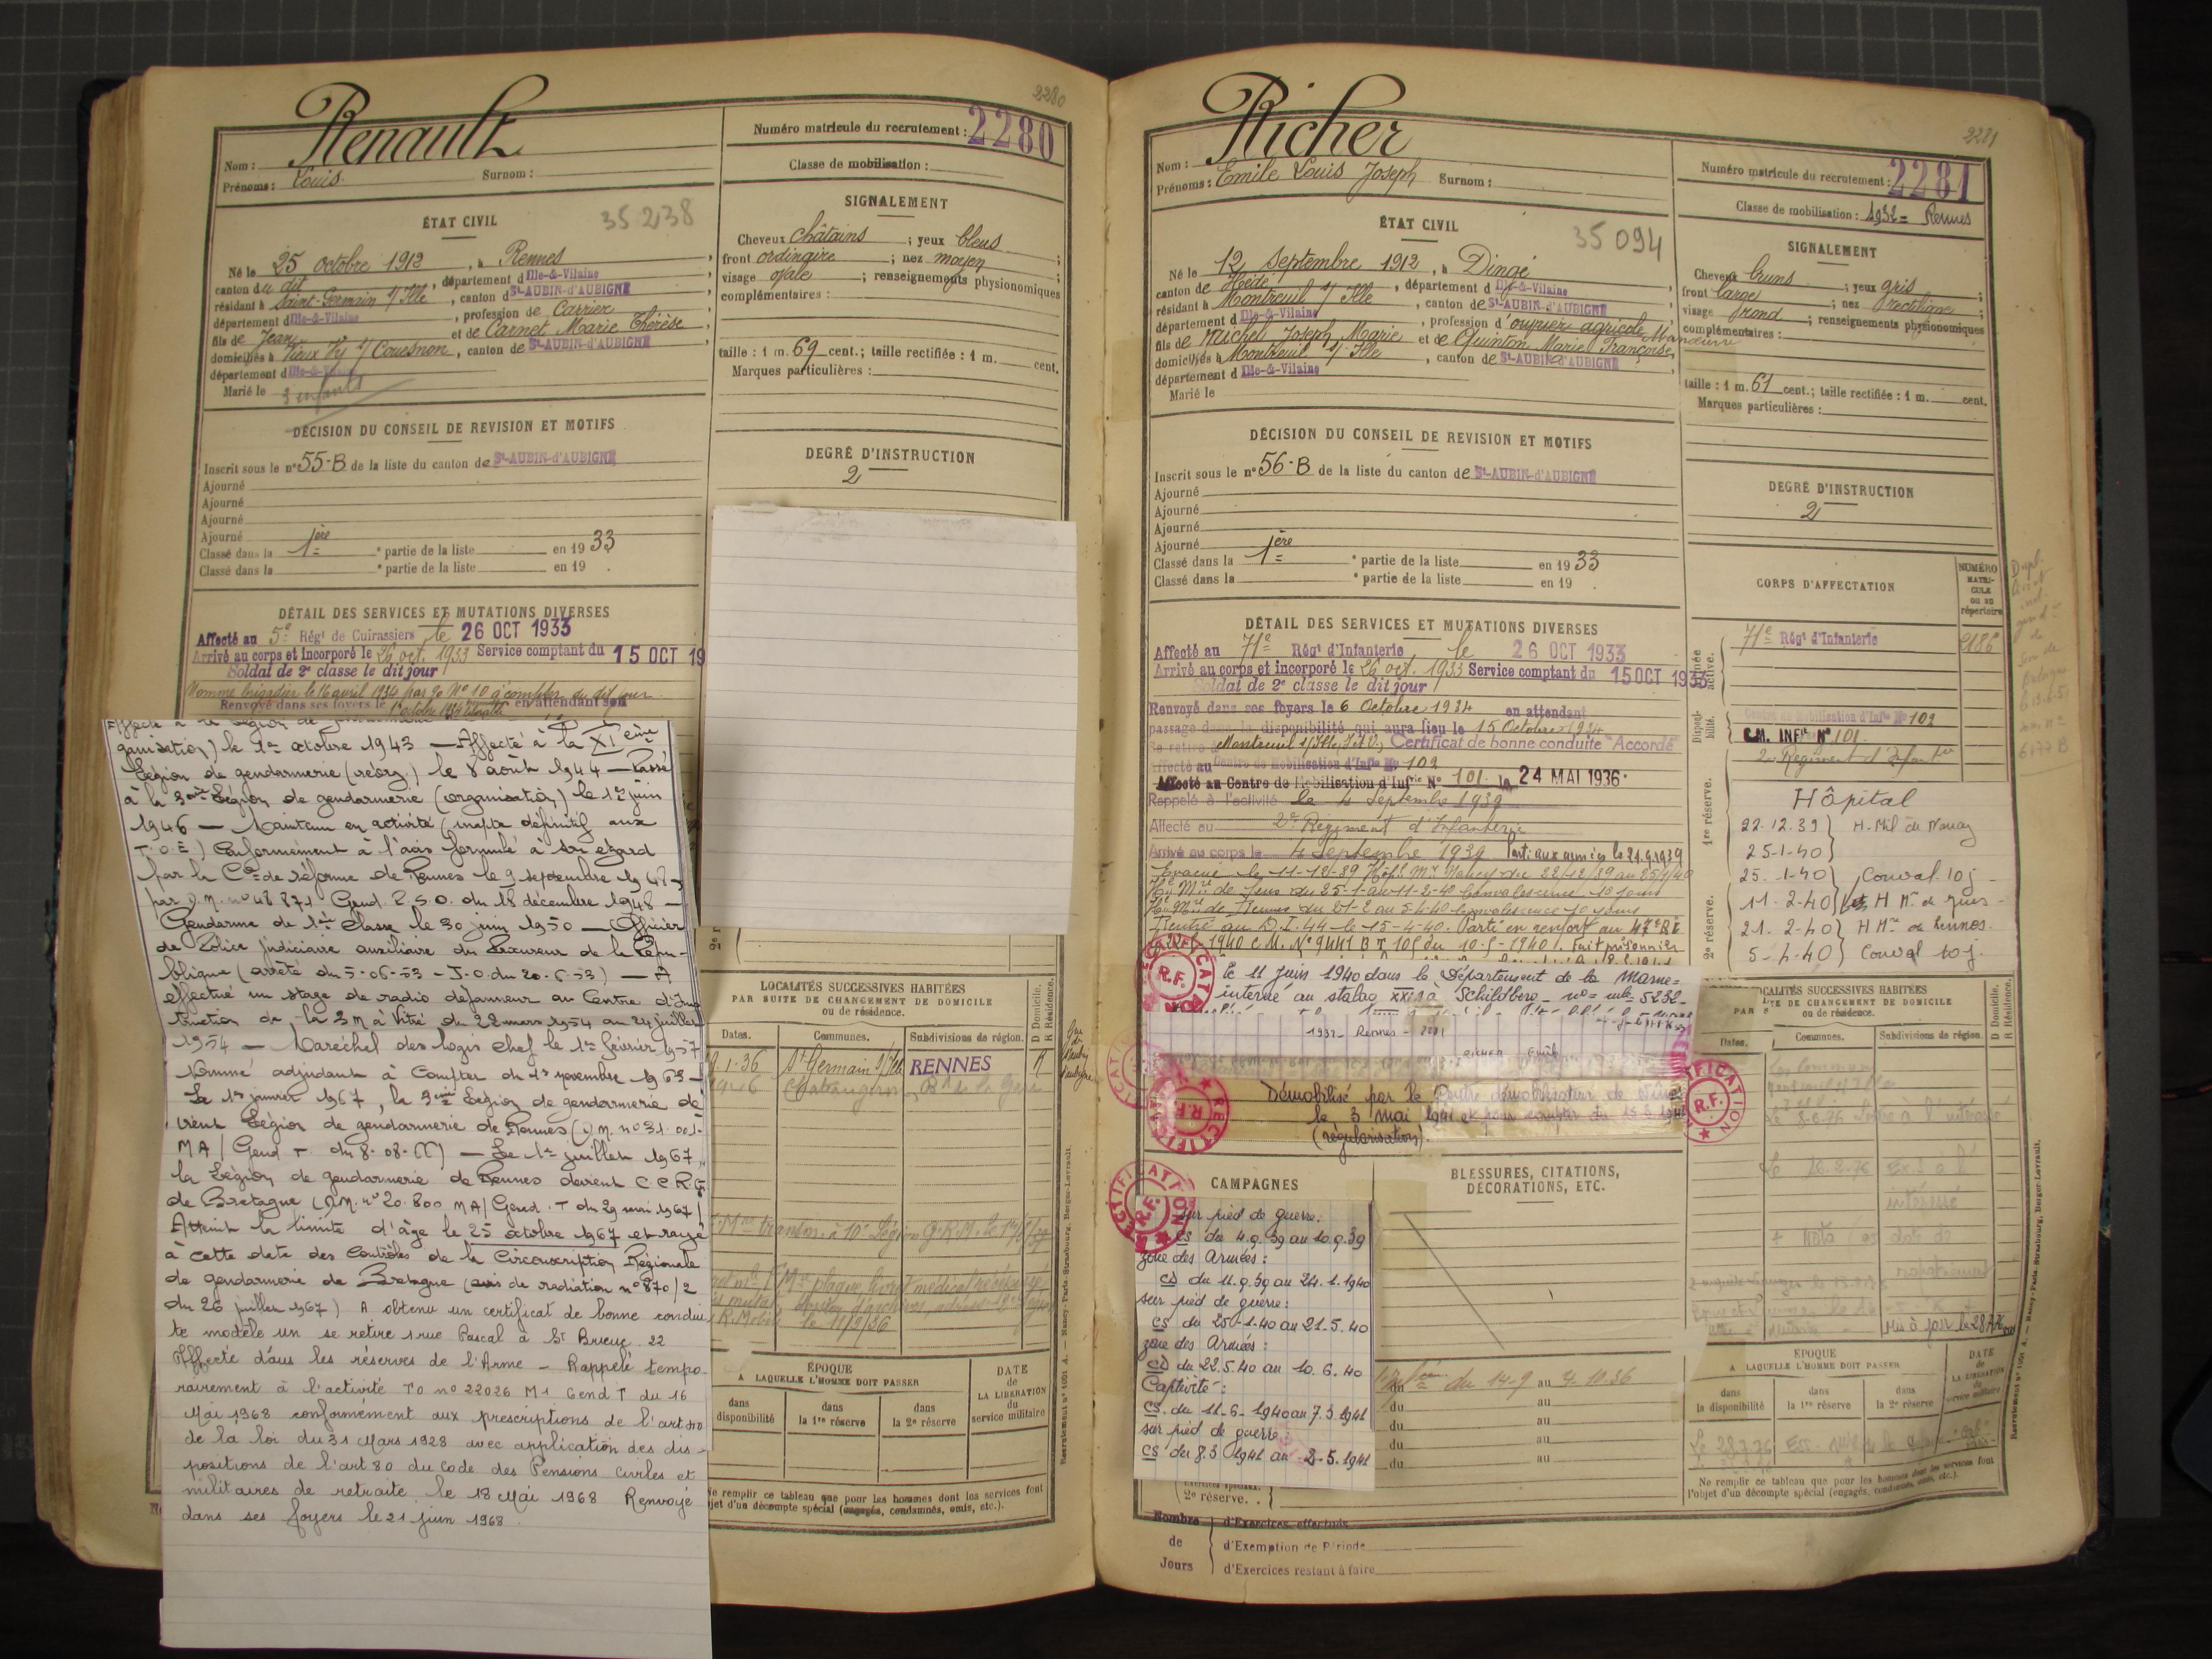 2280
Renault
Nom :
Prénoms : Louis
Surnom :
Numéro matricule du recrutement : 2280
Classe de mobilisation :
ÉTAT CIVIL
35238
Né le 25 octobre 1912, à Rennes,
canton du dit, département d Ille-&-Vilaine
résidant à Saint-Germain s/ Ille, canton de St-AUBIN-d'AUBIGNÉ
département d Ille-&-Vilaine, profession de Carrier
fils de Jean et de Carnet Marie Thérèse,
domiciliés à Vieux Vy s/ Couesnon, canton de St-AUBIN-d'AUBIGNÉ
département d Ille-&-Vilaine
Marié le 3 enfants
SIGNALEMENT
Cheveux châtains ; yeux bleus
front ordinaire ; nez moyen ;
visage ovale ; renseignements physionomiques
complémentaires :
taille : 1 m. 69 cent.; taille rectifiée : 1 m. cent.
Marques particulières :
DÉCISION DU CONSEIL DE REVISION ET MOTIFS
Inscrit sous le n° 55-B de la liste du canton de St-AUBIN-d'AUBIGNÉ
Ajourné
Ajourné
Ajourné
Ajourné
Classé dans la 1ère partie de la liste en 1933
Classé dans la partie de la liste en 19 .
DEGRÉ D'INSTRUCTION
2
DÉTAIL DES SERVICES ET MUTATIONS DIVERSES
Affecté au 5e Régt de Cuirassiers, le 26 OCT 1933
Arrivé au corps et incorporé le 26 oct. 1933 Service comptant du 15 OCT 19
Soldat de 2e classe le dit jour
Nommé brigadier le 16 avril 1934 par No 10 à compter du dit jour.
Renvoyé dans ses foyers le 1er octobre 1934 en attendant son
ganisation) le 1er octobre 1943 — Affecté à la XIème
Légion de gendarmerie (réorg.) le 8 août 1944 — Passé
à la 3ème Légion de gendarmerie (organisation) le 1er juin
1946 — Maintenu en activité (inapte définitif aux
T.O.E) Conformément à l'avis formulé à son égard
par la Con de réforme de Rennes le 9 septembre 1948 -
par D.M. no 48 871 Gend. P.S.O. du 18 décembre 1948 —
Gendarme de 1ère classe le 30 juin 1950 — Officier
de Police judiciaire auxiliaire du Procureur de la Répu-
blique (arrêté du 5-06-53 - J.O. du 20.6.53) — A
effectué un stage de radio dépanneur au Centre d'Ins
truction de la 3M à Vitré du 22 mars 1954 au 24 juillet
1954 — Maréchal des logis chef le 1er février 1957
Nommé adjudant à Compter du 1er novembre 1963 —
Le 1er janvier 1967, la 3ème Légion de gendarmerie de
vient Légion de gendarmerie de Rennes (D.M. no 31.001-
MA/ Gend T. du 8.08.66) — Le 1er juillet 1967,
la Légion de gendarmerie de Rennes devient C.C.R.G
de Bretagne (D.M. no 20.800 MA/ Gend. T du 29 mai 1967)
Atteint la limite d'âge le 25 octobre 1967 et rayé
à cette date des Contrôles de la Circonscription Régionale
de gendarmerie de Bretagne (avis de radiation no 870/2
du 26 juillet 1967) A obtenu un certificat de bonne condui
te modèle un se retire 1 rue Pascal à St Brieuc. 22
Affecté dans les réserves de l'Arme — Rappelé tempo-
rairement à l'activité TO no 22026 MA Gend T du 16
Mai 1968 conformément aux prescriptions de l'art 40
de la loi du 31 Mars 1928 avec application des dis-
positions de l'art 80 du Code des Pensions civiles et
militaires de retraite le 18 Mai 1968 Renvoyé
dans ses foyers le 21 juin 1968.
LOCALITÉS SUCCESSIVES HABITÉES
PAR SUITE DE CHANGEMENT DE DOMICILE
ou de résidence.
Dates.
Communes.
Subdivisions de région.
D Domicile.
R Résidence.
1.36 St Germain s/ Ille RENNES R
ÉPOQUE
A LAQUELLE L'HOMME DOIT PASSER
DATE
de
LA LIBÉRATION
du
service militaire
dans
disponibilité
dans
la 1re réserve
dans
la 2e réserve
Ne remplir ce tableau que pour les hommes dont les services font
l'objet d'un décompte spécial (engagés, condamnés, omis, etc.).
2281
Richer
Nom :
Prénoms : Emile Louis Joseph
Surnom :
Numéro matricule du recrutement : 2281
Classe de mobilisation : 1932 = Rennes
ÉTAT CIVIL
35094
Né le 12 Septembre 1912, à Dingé
canton de Hédé, département d Ille-&-Vilaine
résidant à Montreuil s/ Ille, canton de St-AUBIN-d'AUBIGNÉ
département d Ille-&-Vilaine, profession d'ouvrier agricole Manœuvre
fils de Michel Joseph Marie et de Quinton Marie Françoise,
domiciliés à Montreuil s/ Ille, canton de St-AUBIN-d'AUBIGNÉ
département d Ille-&-Vilaine
Marié le
SIGNALEMENT
Cheveux bruns ; yeux gris ;
front large ; nez rectiligne ;
visage rond ; renseignements physionomiques
complémentaires :
taille : 1 m. 61 cent.; taille rectifiée : 1 m. cent.
Marques particulières :
DÉCISION DU CONSEIL DE REVISION ET MOTIFS
Inscrit sous le n° 56-B de la liste du canton de St-AUBIN-d'AUBIGNÉ
Ajourné
Ajourné
Ajourné
Ajourné
Classé dans la 1ère partie de la liste en 1933
Classé dans la partie de la liste en 19 .
DEGRÉ D'INSTRUCTION
2
CORPS D'AFFECTATION
NUMÉRO
MATRI-
CULE
ou au
répertoire
71e Régt d'Infanterie 2186
Centre de Mobilisation d'Infie No 102
C.M. INFie N° 101
2e Régiment d'Infant
Disponi-
bilité.
1re réserve.
2e réserve.
Hôpital
22.12.39 } H. Mil de Nancy
25-1-40 }
25.1-40 } Conval 10j -
11-2-40 } H Mre de Jeus -
21.2-40 } H Mre de Rennes.
5-4-40 } Conval 10j.
DÉTAIL DES SERVICES ET MUTATIONS DIVERSES
Affecté au 71e Régt d'Infanterie, le 26 OCT 1933
Arrivé au corps et incorporé le 26 oct. 1933 Service comptant du 15 OCT 1933
Soldat de 2e classe le dit jour
Renvoyé dans ses foyers le 6 Octobre 1934 en attendant
passage dans la disponibilité qui aura lieu le 15 Octobre 1934
Se retire à Montreuil s/Ille, I&V, Certificat de bonne conduite "Accordé"
Affecté au Centre de Mobilisation d'Infie No 102
Affecté au Centre de Mobilisation d'Infrie No 101 le 24 MAI 1936.
Rappelé à l'activité le 4 Septembre 1939
Affecté au 2e Régiment d'Infanterie
Arrivé au corps le 4 Septembre 1939 Parti aux armées le 21.9.1939
Evacué le 11-12-39 Hôpl Mre Nancy du 22/12/39 au 25/1/40
Hal Mre de Jeus du 25-1-au 11-2-40 Convalescence 10 jours
Hal Mre de Rennes du 21-2 au 5-4-40 Convalescence 10 jours
Rentré au D.I. 44 le 15-4-40. Parti en renfort au 47e RI
1940 C.M. No 9441 B T 105 du 10-5-1940. Fait prisonnier
le 11 juin 1940 dans le Département de la Marne =
interné au stalag XXI à Schildberg - no = mle = 5232 -
1932 - Rennes - 2281
RICHER Emile
Démobilisé par le Centre démobilisateur de Nîmes
le 3 mai 1941 et pour compter du
(régularisation).
RECTIFICATION
R.F.
CAMPAGNES
sur pied de guerre :
CS du 4.9.39 au 10.9.39
zone des Armées :
CD du 11.9.39 au 24.1.1940
sur pied de guerre :
CS du 25-1-40 au 21.5.40
zone des Armées :
CD du 22.5.40 au 10.6.40
Captivité :
CS. du 11-6-1940 au 7.3.1941
sur pied de guerre :
CS du 8.3 1941 au 2-5.1941
BLESSURES, CITATIONS,
DÉCORATIONS, ETC.
du 14-9 au 4.10.36
du au
du au
du au
du au
2e réserve. .
Nombre
de
Jours
d'Exercices effectués
d'Exemption de Période
d'Exercices restant à faire
LOCALITÉS SUCCESSIVES HABITÉES
DE CHANGEMENT DE DOMICILE
ou de résidence.
Dates.
Communes.
Subdivisions de région.
D Domicile.
R Résidence.
ÉPOQUE
A LAQUELLE L'HOMME DOIT PASSER
DATE
de
LA LIBÉRATION
du
service militaire
dans
la disponibilité
dans
la 1re réserve
dans
la 2e réserve
Ne remplir ce tableau que pour les hommes dont les services font
l'objet d'un décompte spécial (engagés, condamnés, omis, etc.).